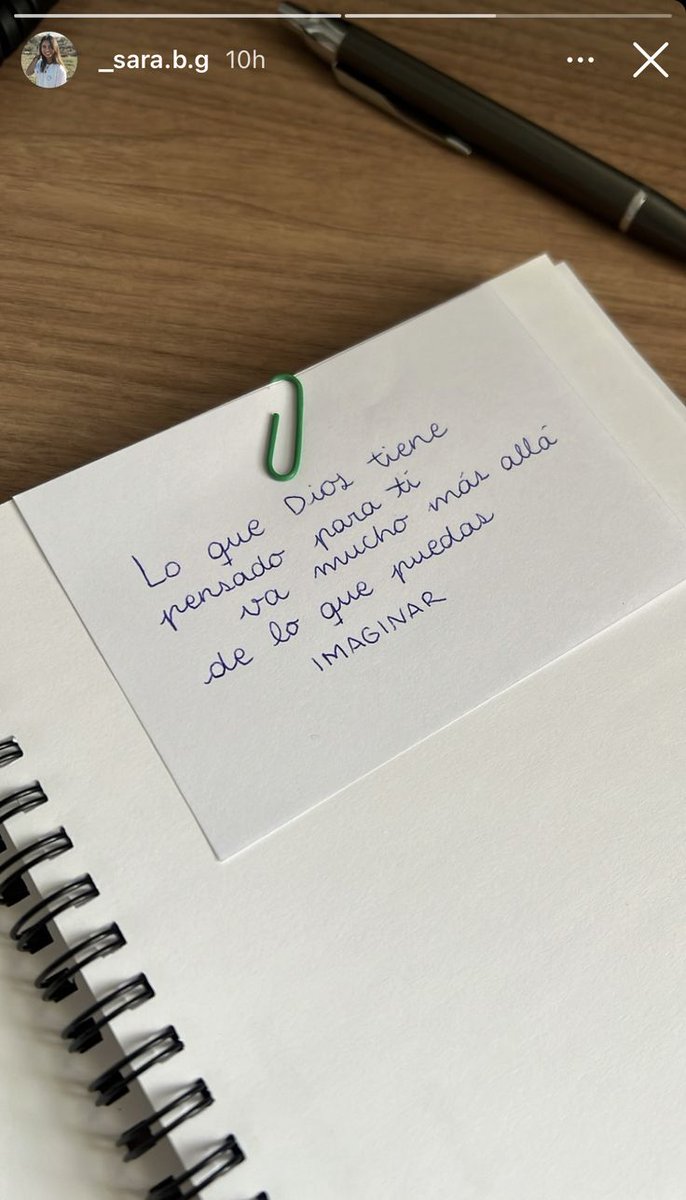 _sara.b.g 10h
Lo que Dios tiene
pensado para ti
va mucho más allá
de lo que puedas
IMAGINAR